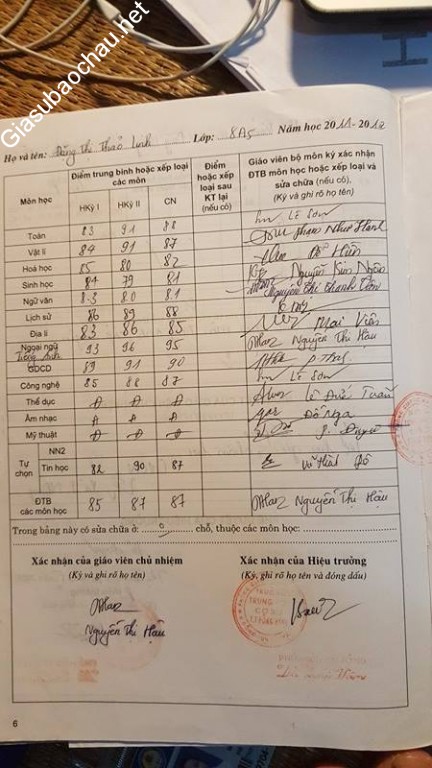 Giasubaochau.net
Họ và tên: Đặng Thị Thảo Linh Lớp: 8A5 Năm học 2011-2012
Môn học Điểm trung bình hoặc xếp loại các môn Điểm hoặc xếp loại sau KT lại (nếu có) Giáo viên bộ môn ký xác nhận ĐTB môn học hoặc xếp loại và sửa chữa (nếu có), (Ký và ghi rõ họ tên)
HKỳ I HKỳ II CN
Toán 83 91 88 Lê Sơn
Vật lí 84 91 87 Phạm Như
Hoá học 85 80 82 Đỗ Hiền
Sinh học 84 79 81 Nguyễn Kim Ngân
Ngữ văn 8-3 80 81 Nguyễn Thị Thanh
Lịch sử 86 89 88
Địa lí 83 86 85 Mai Viên
Ngoại ngữ Tiếng Anh 93 96 95 Nguyễn Thị Hậu
GDCD 89 91 90
Công nghệ 85 88 87 Lê Sơn
Thể dục Đ Đ Đ Lê Đức Tuấn
Âm nhạc Đ Đ Đ Đỗ Nga
Mỹ thuật Đ Đ Đ
Tự chọn NN2
Tin học 82 90 87
ĐTB các môn học 85 87 87 Nguyễn Thị Hậu
Trong bảng này có sửa chữa ở: 0 chỗ, thuộc các môn học:
Xác nhận của giáo viên chủ nhiệm Xác nhận của Hiệu trưởng
(Ký và ghi rõ họ tên) (Ký, ghi rõ họ tên và đóng dấu)
Nguyễn Thị Hậu
6